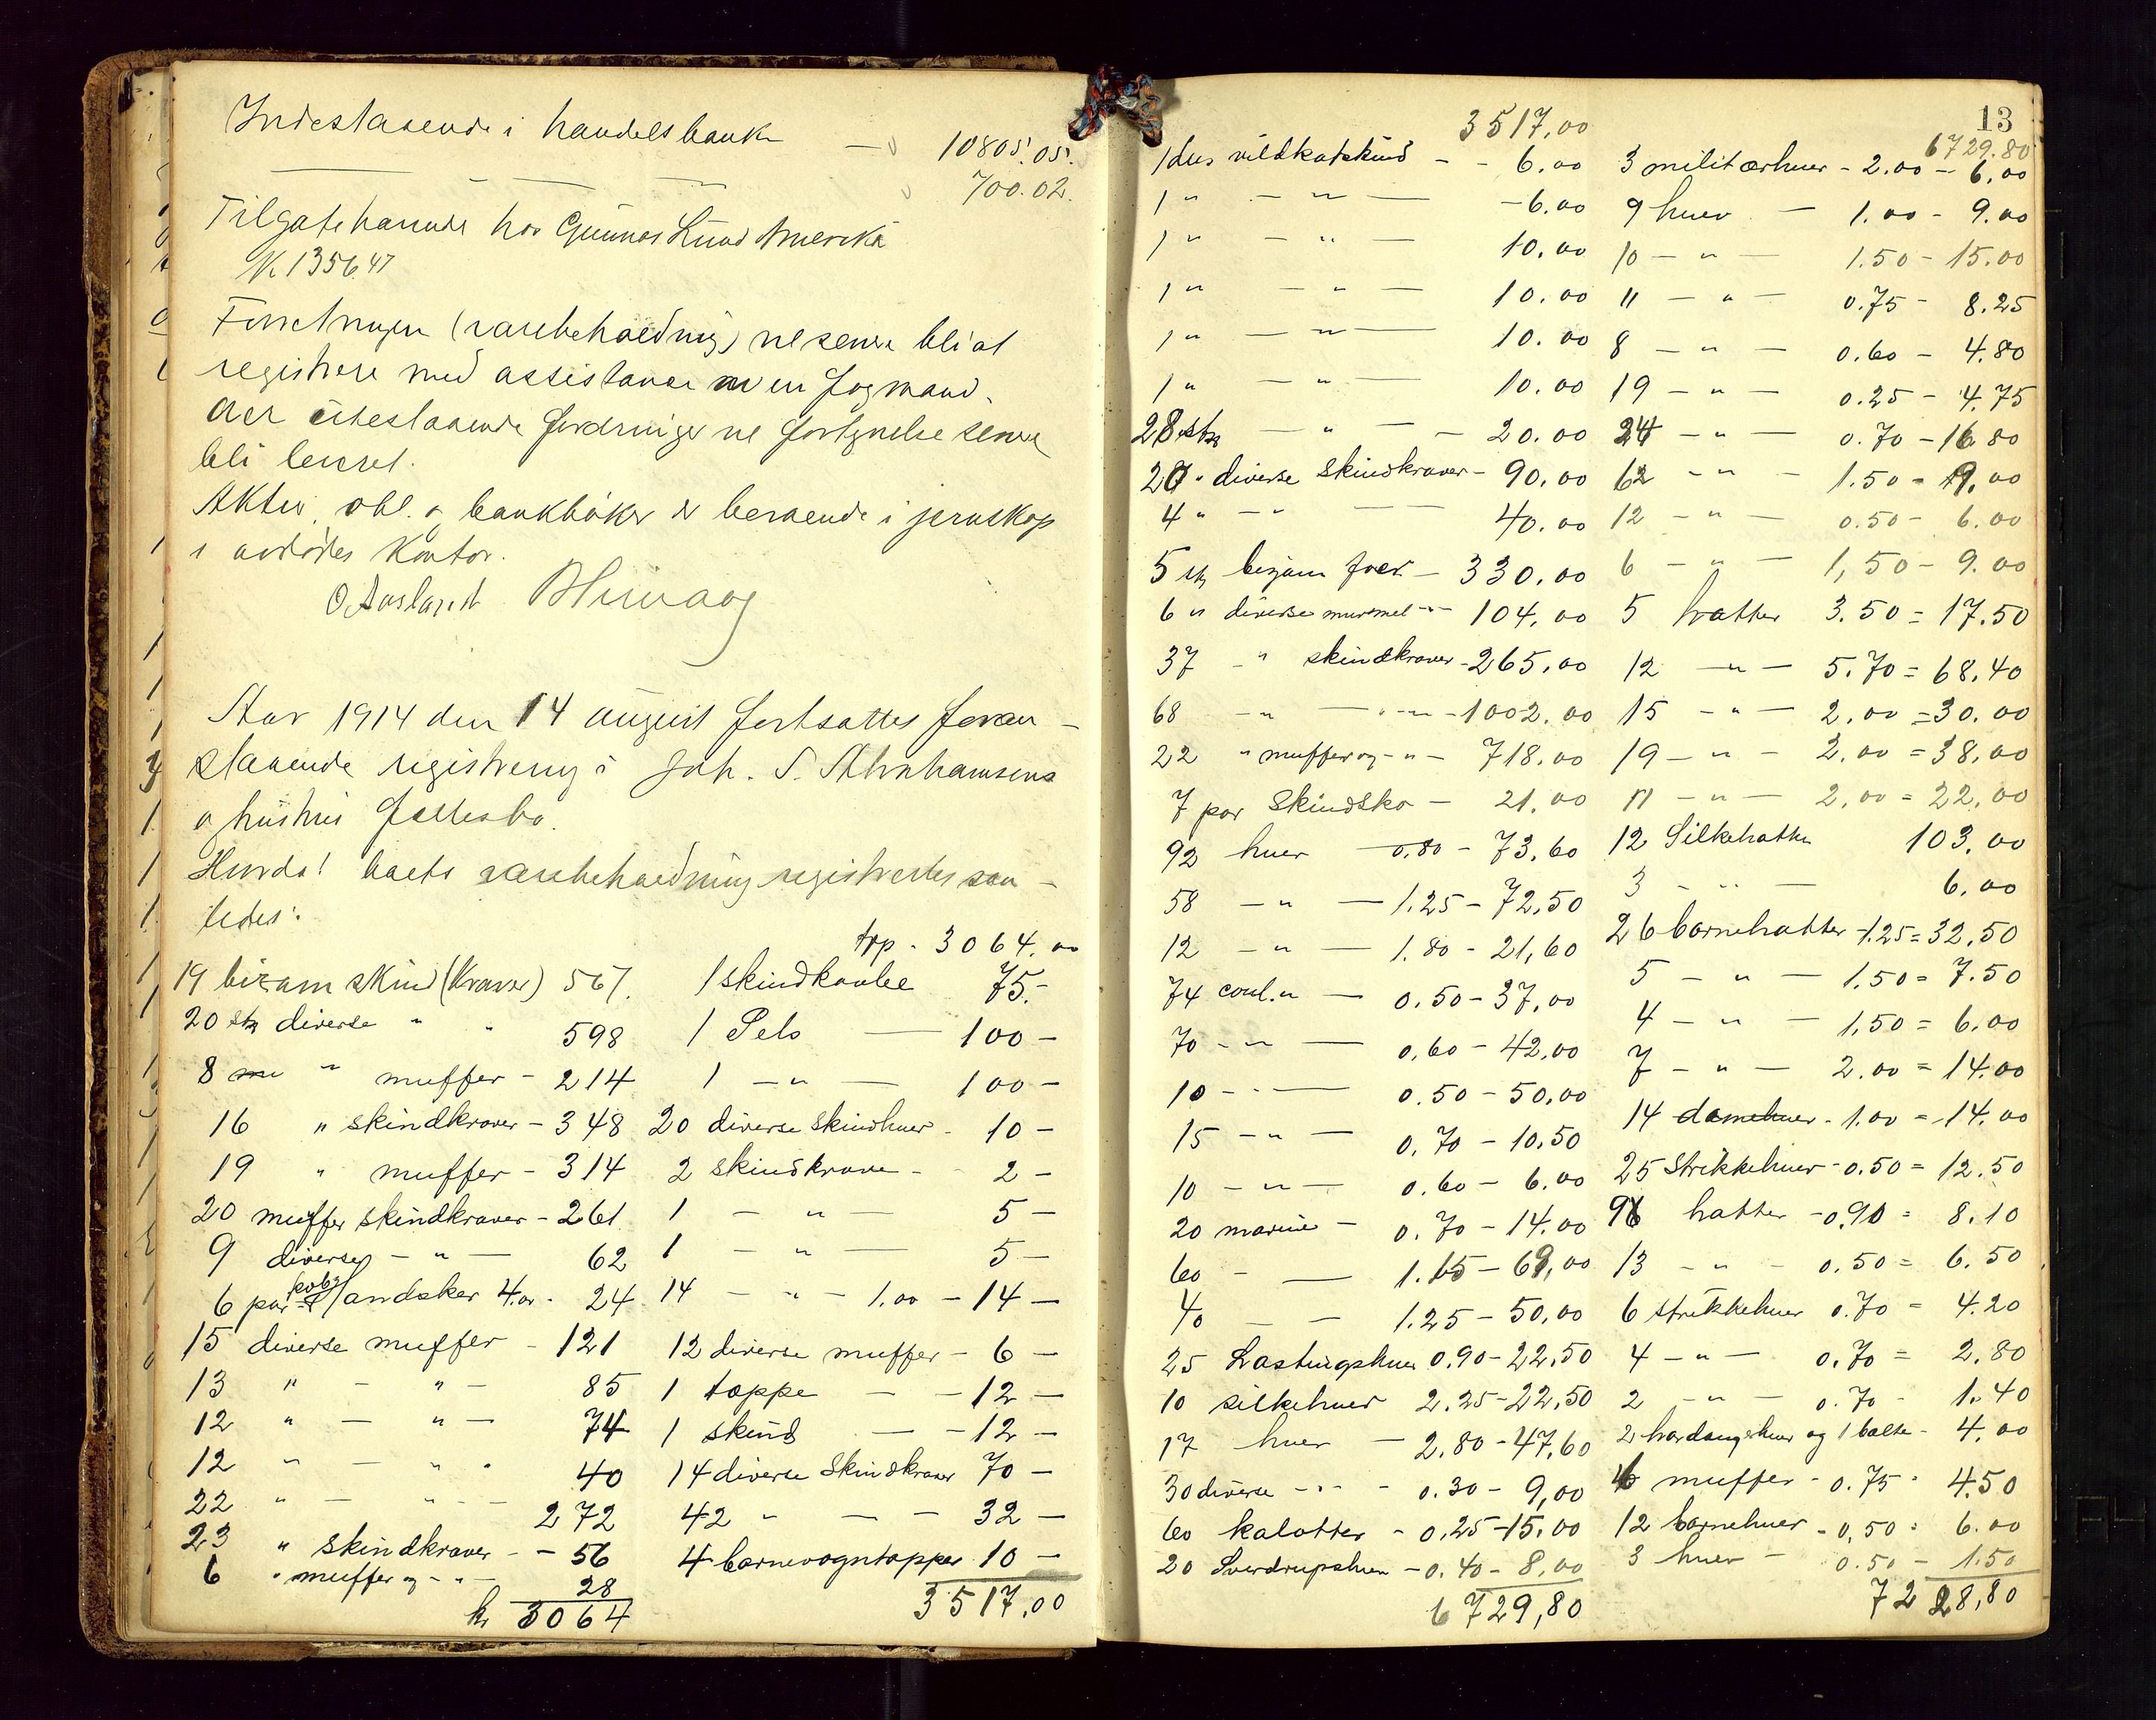 Indestaaende i handelsbank — 10805.05.
— — — — 700.02.
Tilgodehavende hos Gunnar Lund Amerika
K 1356.47
Forretningen (varebeholdning) vil senere bli at
registrere med assistance av en fagmand.
Der utestaaende fordringer vil fortegnelse senere
bli levert.
Aktier, obl. o bankbøker er beroende i jernskap
i avdødes kontor.
O. Aasland
Aar 1914 den 14 august fortsattes foran-
staaende registrering i Joh. S. Abrahamsens
o hustrus fællesbo.
varebeholdning registrertes saa-
ledes:
trp. 3064.00
19 bizam skind (Kraver) 567.
20 stk diverse " " 598
8 " muffer - 214
16 " skindkraver - 348
19 " muffer - 314
20 muffer skindkraver - 261
9 diverse - " - 62
6 par handsker 4.00 - 24
15 diverse muffer - 121
13 " - " - 85
12 " - " - 74
12 " - " - 40
22 " - " - 272
23 " skindkraver - 56
6 " muffer og - " - 28
kr 3064
1 skindkaabe 75.-
1 Pels — 100 -
1 - " - 100 -
20 diverse skindhuer - 10 -
2 skindkrave - 2 -
1 - " - 5 -
1 - " - 5 -
14 - " - 1.00 - 14 -
12 diverse muffer - 6 -
1 tæppe - - 12 -
1 skind - - 12 -
14 diverse skindkraver 70 -
42 " - - - 32 -
4 barnevogntæpper 10 -
3517.00
13
3517,00
1 dus vildkatskind - - 6.00
1 " - " - - 6.00
1 " - " - 10.00
1 " - " - 10.00
1 " - " - 10.00
1 " - " - 10.00
28 stk - " - - 20.00
20 " diverse skindkraver - 90.00
4 " - " - - 40.00
5 stk bizam foer - 330.00
6 " diverse murmel - " - 104.00
37 - " skindkraver - 265.00
68 - " - - " - 1002.00
22 " muffer og - " - 718.00
7 par Skindsko - 21.00
92 huer - 0.80 - 73.60
58 - " - 1.25 - 72,50
12 - " - 1.80 - 21,60
74 coul. " - 0.50 - 37,00
70 - " - 0.60 - 42,00
10 - " - 0.50 - 50,00
15 - " - 0.70 - 10,50
10 - " - 0.60 - 6.00
20 marine - 0.70 - 14.00
60 - - 1.15 - 69,00
40 - - 1.25 - 50,00
25 Lastingshuer 0.90 - 22,50
10 silkehuer 2.25 - 22,50
17 huer - 2.80 - 47,60
30 diverse - " - 0.30 - 9,00
60 kalotter - 0.25 - 15,00
20 Sverdrupshuer - 0.40 - 8,00
6729,80
6729.80
3 militærhuer - 2.00 - 6.00
9 huer - 1.00 - 9.00
10 - " - 1.50 - 15.00
11 - " - 0.75 - 8.25
8 - " - 0.60 - 4.80
19 - " - 0.25 - 4.75
24 - " - 0.70 - 16.80
62 - " - 1.50 - 9,00
12 - " - 0.50 - 6.00
6 - " - 1,50 - 9.00
5 hatter 3.50 = 17.50
12 - " - 5.70 = 68.40
15 - " - 2,00 = 30.00
19 - " - 2,00 = 38,00
11 - " - 2,00 = 22,00
12 Silkehatter 103,00
3 - " - 6.00
26 barnehatter - 1.25 = 32,50
5 - " - 1,50 = 7.50
4 - " - 1,50 = 6.00
7 - " - 2.00 = 14.00
14 damehuer - 1.00 = 14.00
25 Strikkehuer - 0.50 = 12.50
9 hatter - 0,90 = 8.10
13 - " - 0.50 = 6.50
6 strikkehuer 0.70 = 4.20
4 - " - 0.70 = 2.80
2 - " - 0.70 - 1.40
2 hardangerhuer og 1 bælte - 4.00
6 muffer - 0.75 - 4.50
12 barnehuer - 0,50 = 6.00
3 huer - 0.50 - 1.50
7228,80